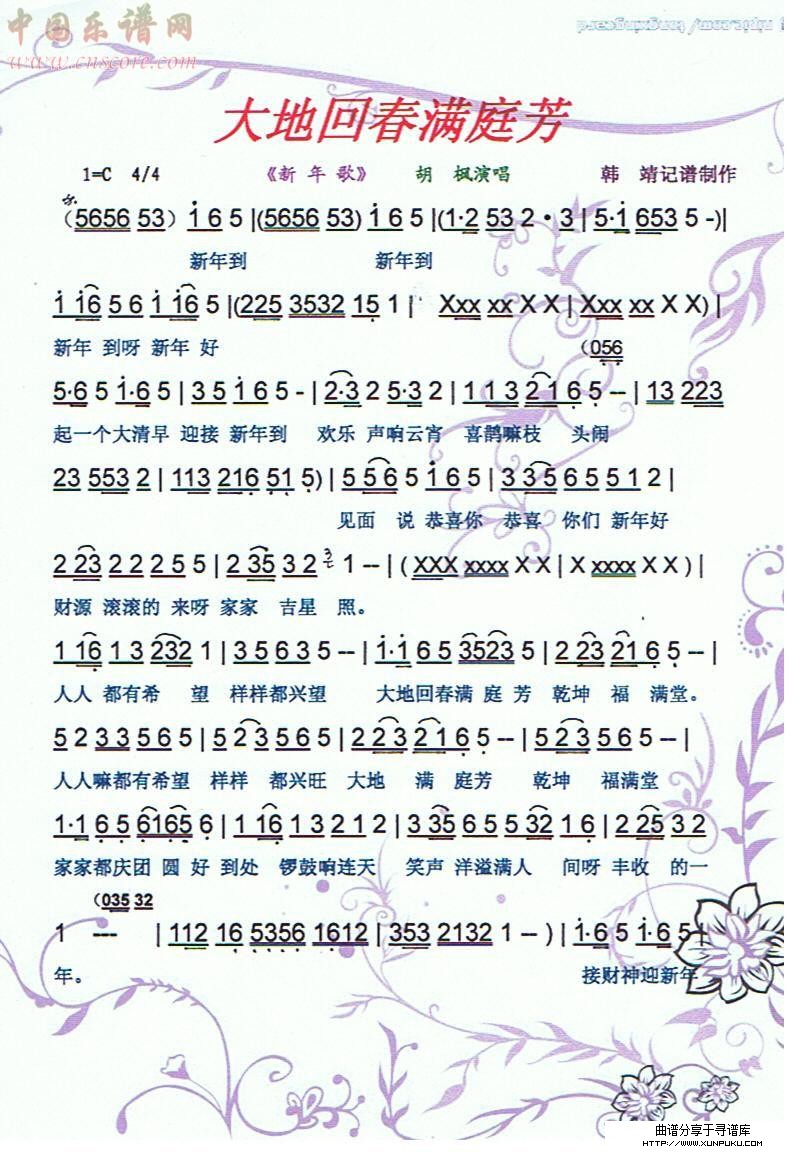 中国乐谱网
www.cnscore.com
大地回春满庭芳
1=C 4/4 《新 年 歌》 胡 枫演唱 韩 靖记谱制作
(5656 53) i 6 5 |(5656 53) i 6 5 |(1·2 53 2·3 | 5·i 653 5 -)|
新年到 新年到
i i6 5 6 i i6 5 |(225 3532 15 1 | Xxx xx X X | Xxx xx X X) |
新年 到呀 新年 好
(056
5·6 5 i·6 5 | 3 5 i 6 5 - | 2·3 2 5·3 2 | 1 1 3 2 1 6 5 -- | 13 223
起一个大清早 迎接 新年到 欢乐 声响云宵 喜鹊嘛枝 头闹
23 553 2 | 113 216 51 5) | 5 5 6 5 i 6 5 | 3 3 5 6 5 5 1 2 |
见面 说 恭喜你 恭喜 你们 新年好
2 23 2 2 2 5 5 | 2 35 3 2 1 -- | ( XXX xxxx X X | X xxxx X X ) |
财源 滚滚的 来呀 家家 吉星 照。
1 16 1 3 232 1 | 3 5 6 3 5 -- | i·i 6 5 3523 5 | 2 23 21 6 5 -- |
人人 都有希 望 样样都兴望 大地回春满 庭 芳 乾坤 福 满堂。
5 2 3 3 5 6 5 | 5 2 3 5 6 5 | 2 2 3 2 1 6 5 -- | 5 2 3 5 6 5 -- |
人人嘛都有希望 样样 都兴旺 大地 满 庭芳 乾坤 福满堂
1·1 6 5 6165 6 | 1 16 1 3 2 1 2 | 3 35 6 5 5 32 1 6 | 2 25 3 2
家家都庆团 圆 好 到处 锣鼓响连天 笑声 洋溢满人 间呀 丰收 的一
(035 32
1 --- | 112 16 5356 1612 | 353 2132 1 -- ) | i·6 5 i·6 5 |
年。 接财神迎新年
曲谱分享于寻谱库
HTTP://WWW.XUNPUKU.COM